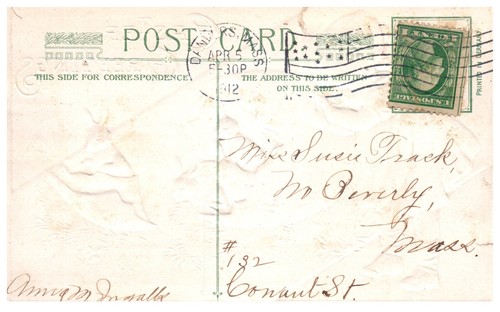 POST CARD
DANVERS, MASS.
APR 5
5-30P
1912
THIS SIDE FOR CORRESPONDENCE.
THE ADDRESS TO BE WRITTEN
ON THIS SIDE.
PRINTED IN GERMANY
U.S. POSTAGE
1 CENT 1
Miss Susie Track,
No Beverly,
Mass.
#
132
Conant St.
Anna M Ingalls